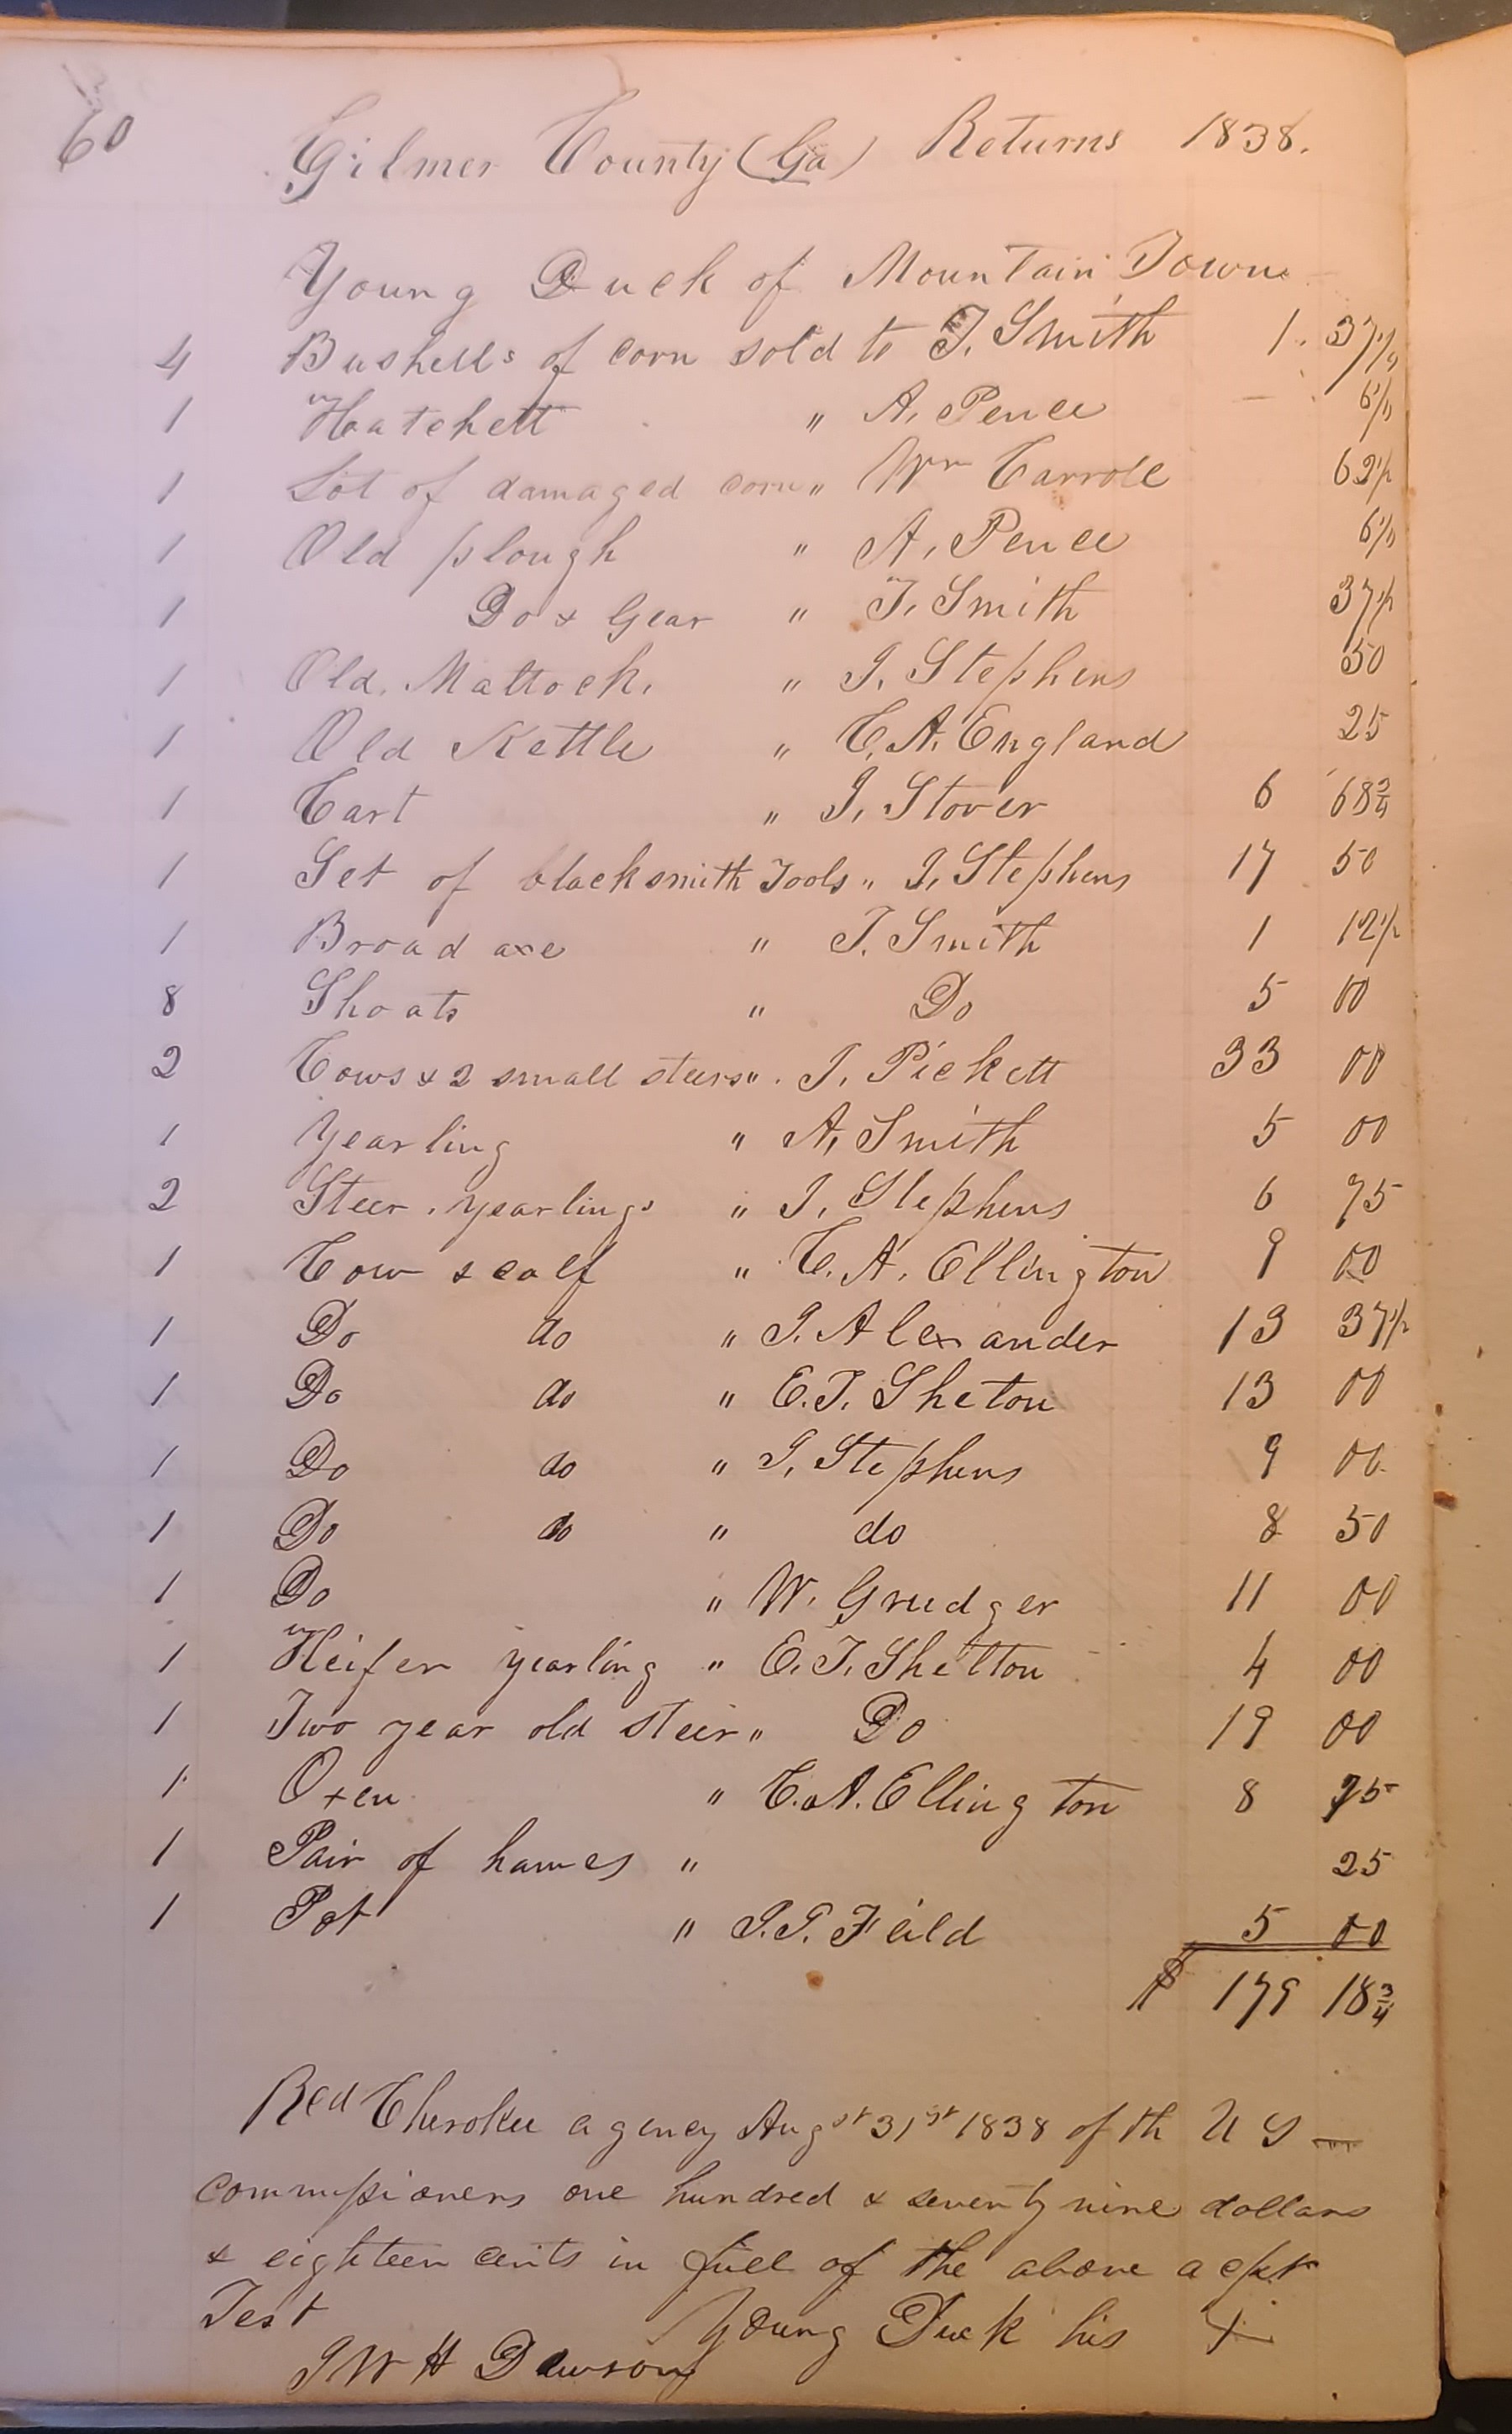 60
Gilmer County (Ga) Returns 1838.
Young Duck of Mountain Town
4 Bushells of corn sold to T. Smith 1. 37 1/2
1 Hatchett " A. Pence 6 1/4
1 Lot of damaged corn " Wm Carroll 62 1/2
1 Old plough " A. Pence 6 1/4
1 Do & Gear " T. Smith 37 1/2
1 Old Mattock. " J. Stephens 50
1 Old Kettle " C. A. England 25
1 Cart " J. Stover 6 68 3/4
1 Set of blacksmith Tools " J. Stephens 17 50
1 Broad axe " T. Smith 1 12 1/2
8 Shoats " Do 5 00
2 Cows & 2 small steers " J. Pickett 33 00
1 Yearling " A. Smith 5 00
2 Steer yearlings " J. Stephens 6 75
1 Cow & calf " C. A. Ellington 9 00
1 Do do " J. Alexander 13 37 1/2
1 Do do " E. T. Sheton 13 00
1 Do do " J. Stephens 9 00
1 Do do " do 8 50
1 Do " W. Grudger 11 00
1 Heifer yearling " E. T. Shelton 4 00
1 Two year old steer " Do 19 00
1 Oxen " C. A. Ellington 8 75
1 Pair of hames " 25
1 Pot " J. J. Feild 5 00
$ 179 18 3/4
Recd Cherokee agency Augst 31st 1838 of th U S
commissioners one hundred & seventy nine dollars
& eighteen cents in full of the above acpt
Test Young Duck his X
J W H Dawson